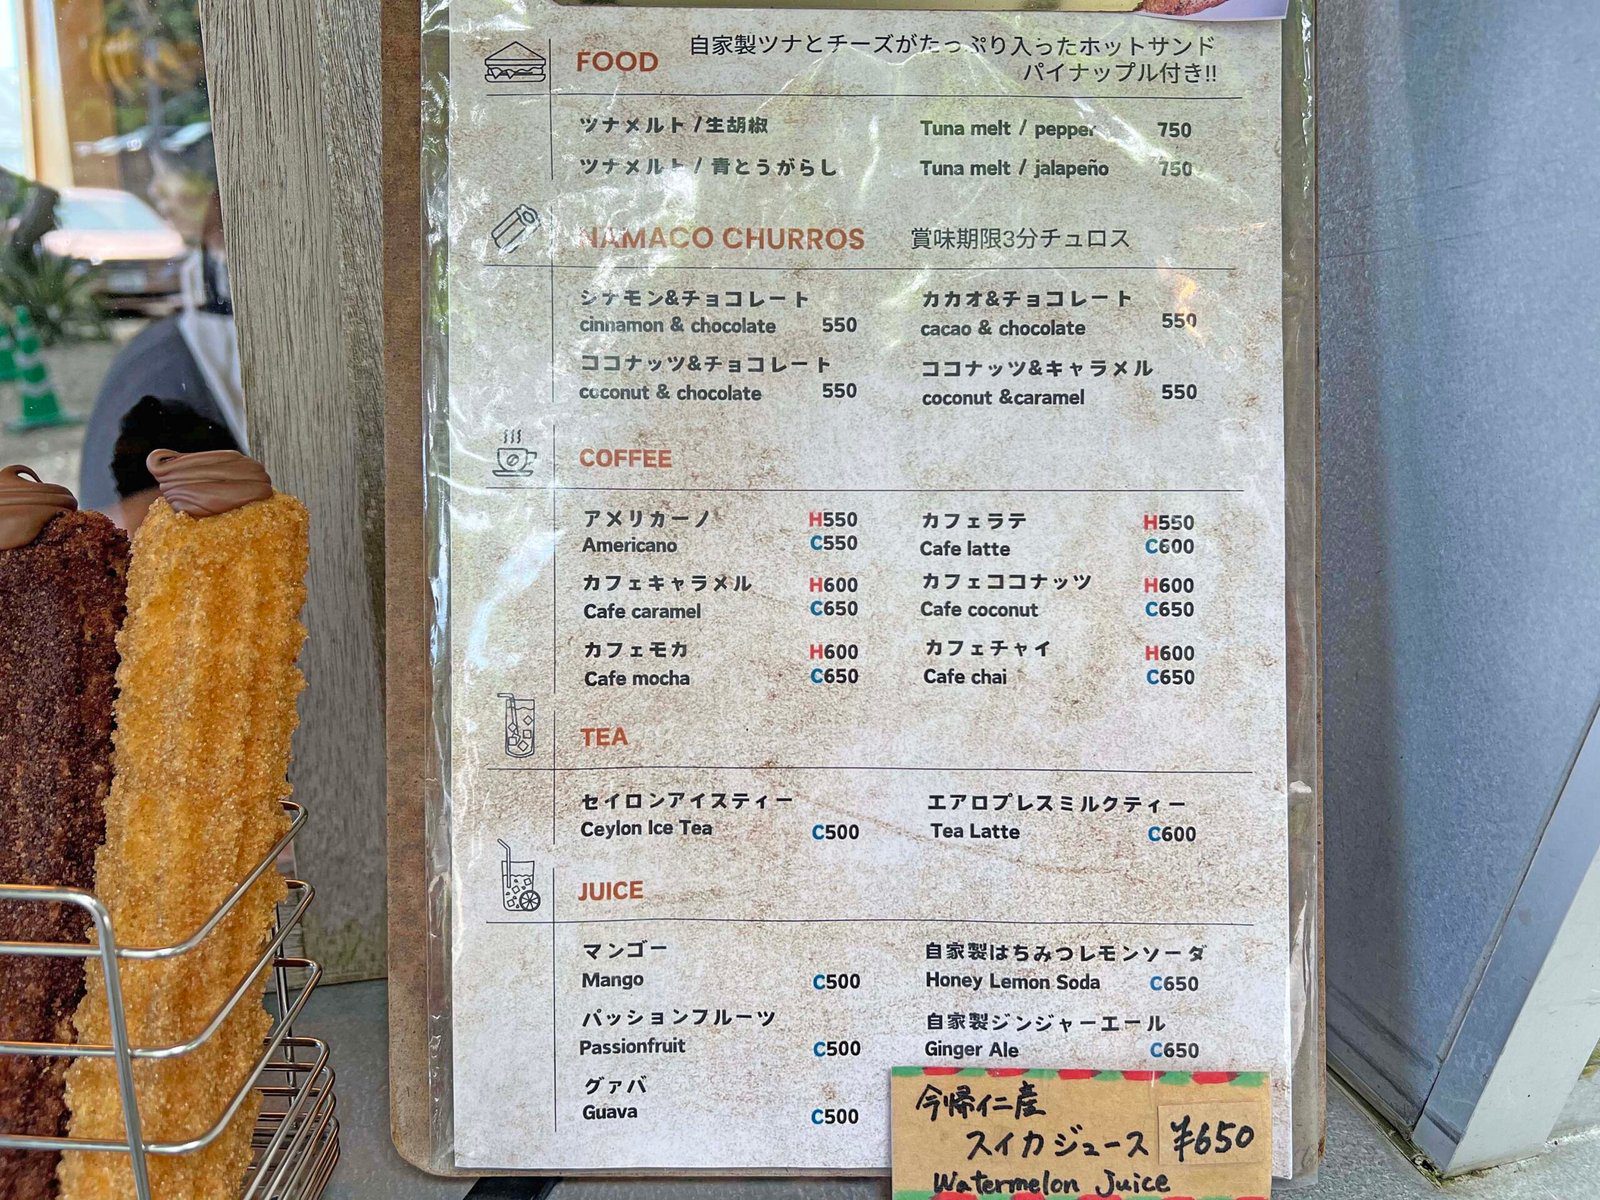 FOOD 自家製ツナとチーズがたっぷり入ったホットサンド
パイナップル付き!!
ツナメルト/生胡椒 Tuna melt / pepper 750
ツナメルト/ 青とうがらし Tuna melt / jalapeño 750
NAMACO CHURROS 賞味期限3分チュロス
シナモン&チョコレート カカオ&チョコレート
cinnamon & chocolate 550 cacao & chocolate 550
ココナッツ&チョコレート ココナッツ&キャラメル
coconut & chocolate 550 coconut &caramel 550
COFFEE
アメリカーノ H550 カフェラテ H550
Americano C550 Cafe latte C600
カフェキャラメル H600 カフェココナッツ H600
Cafe caramel C650 Cafe coconut C650
カフェモカ H600 カフェチャイ H600
Cafe mocha C650 Cafe chai C650
TEA
セイロンアイスティー エアロプレスミルクティー
Ceylon Ice Tea C500 Tea Latte C600
JUICE
マンゴー 自家製はちみつレモンソーダ
Mango C500 Honey Lemon Soda C650
パッションフルーツ 自家製ジンジャーエール
Passionfruit C500 Ginger Ale C650
グァバ
Guava C500
今帰仁産
スイカジュース ¥650
Watermelon Juice